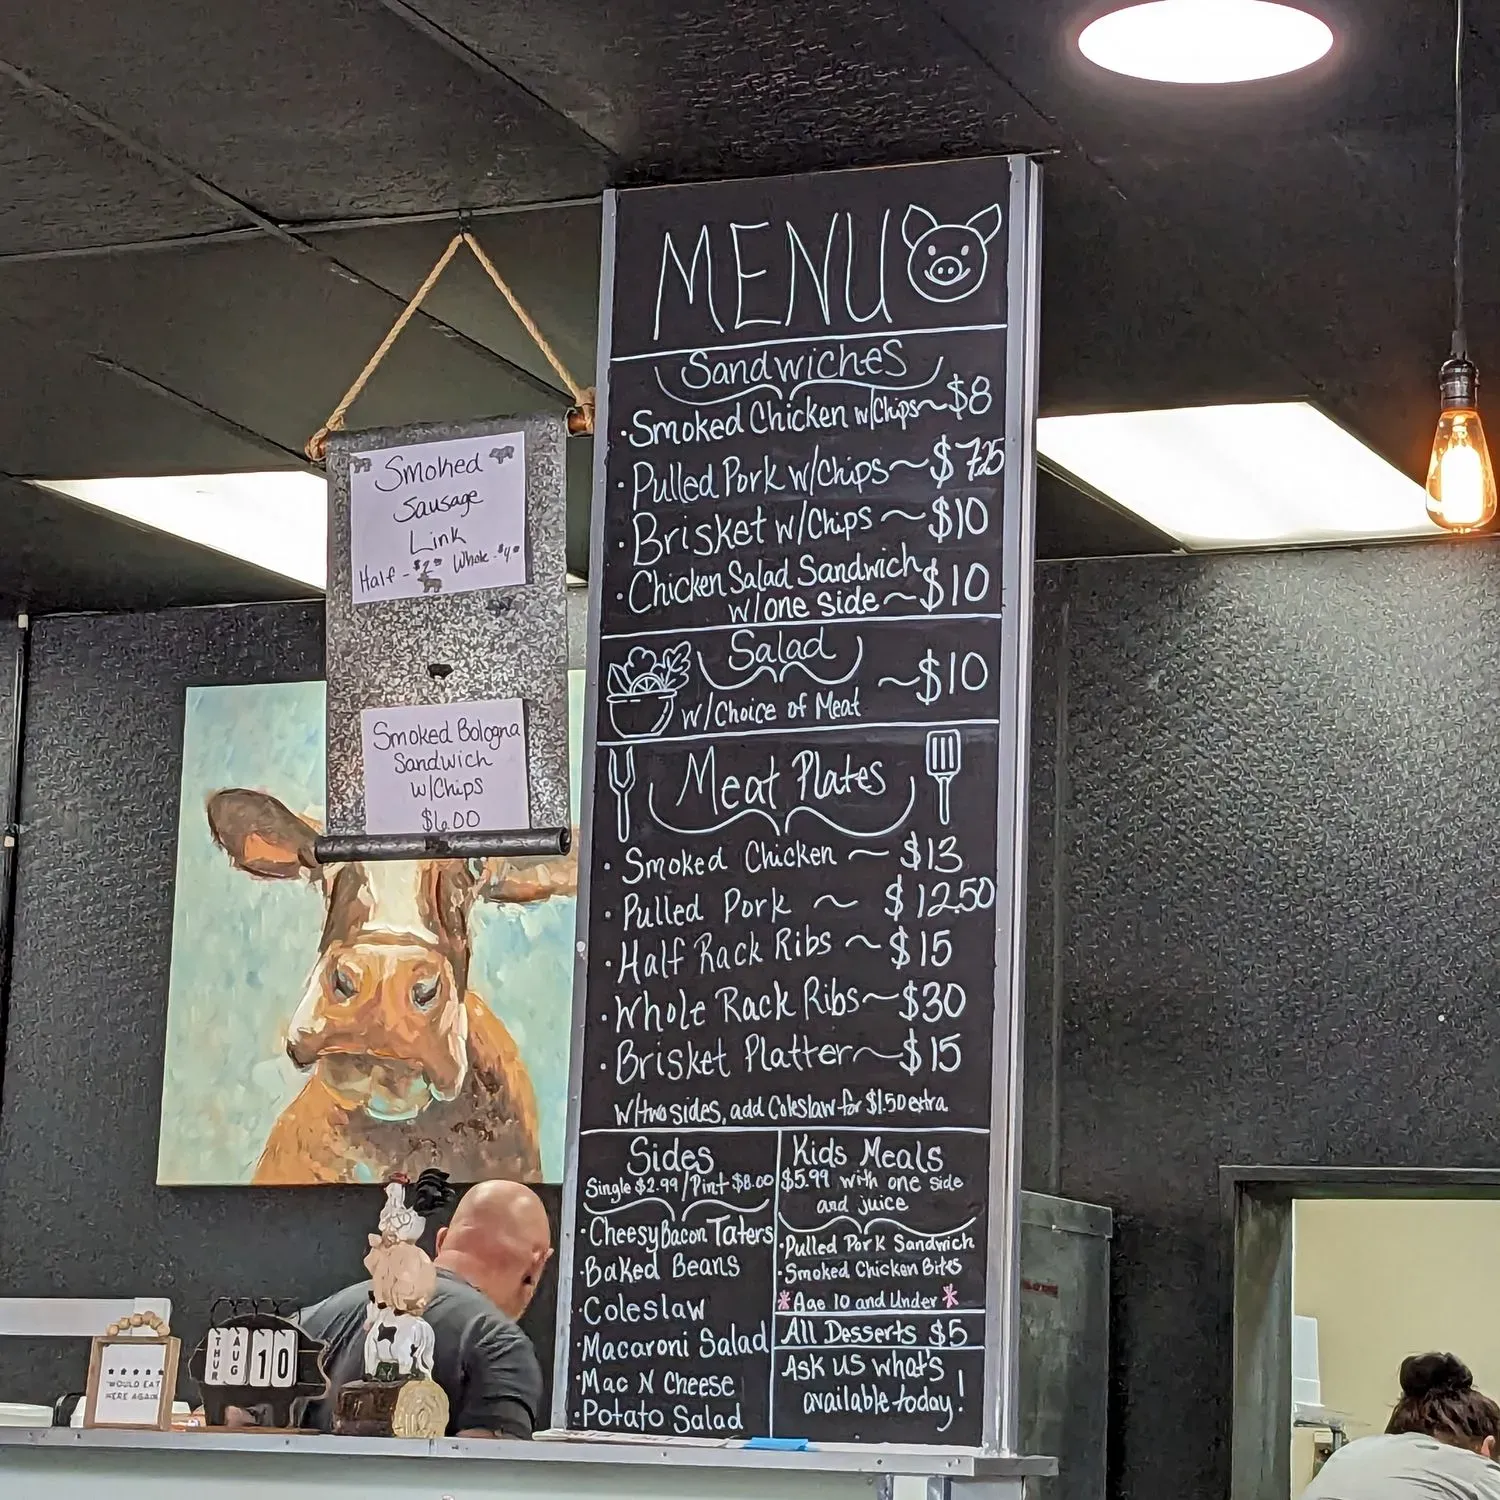 MENU
Sandwiches
·Smoked Chicken w/Chips~$8
·Pulled Pork w/Chips~$7.25
·Brisket w/Chips~$10
·Chicken Salad Sandwich
w/one side~$10
Salad
w/Choice of Meat ~$10
Meat Plates
·Smoked Chicken ~ $13
·Pulled Pork ~ $12.50
·Half Rack Ribs ~ $15
·Whole Rack Ribs~$30
·Brisket Platter~$15
w/two sides, add Coleslaw for $1.50 extra
Sides
Single $2.99/Pint $8.00
·Cheesy Bacon Taters
·Baked Beans
·Coleslaw
·Macaroni Salad
·Mac N Cheese
·Potato Salad
Kids Meals
$5.99 with one side
and juice
·Pulled Pork Sandwich
·Smoked Chicken Bites
*Age 10 and Under*
All Desserts $5
Ask us what's
available today!
Smoked
Sausage
Link
Half - Whole -
Smoked Bologna
Sandwich
w/Chips
$6.00
WOULD EAT
HERE AGAIN
THUR AUG 10